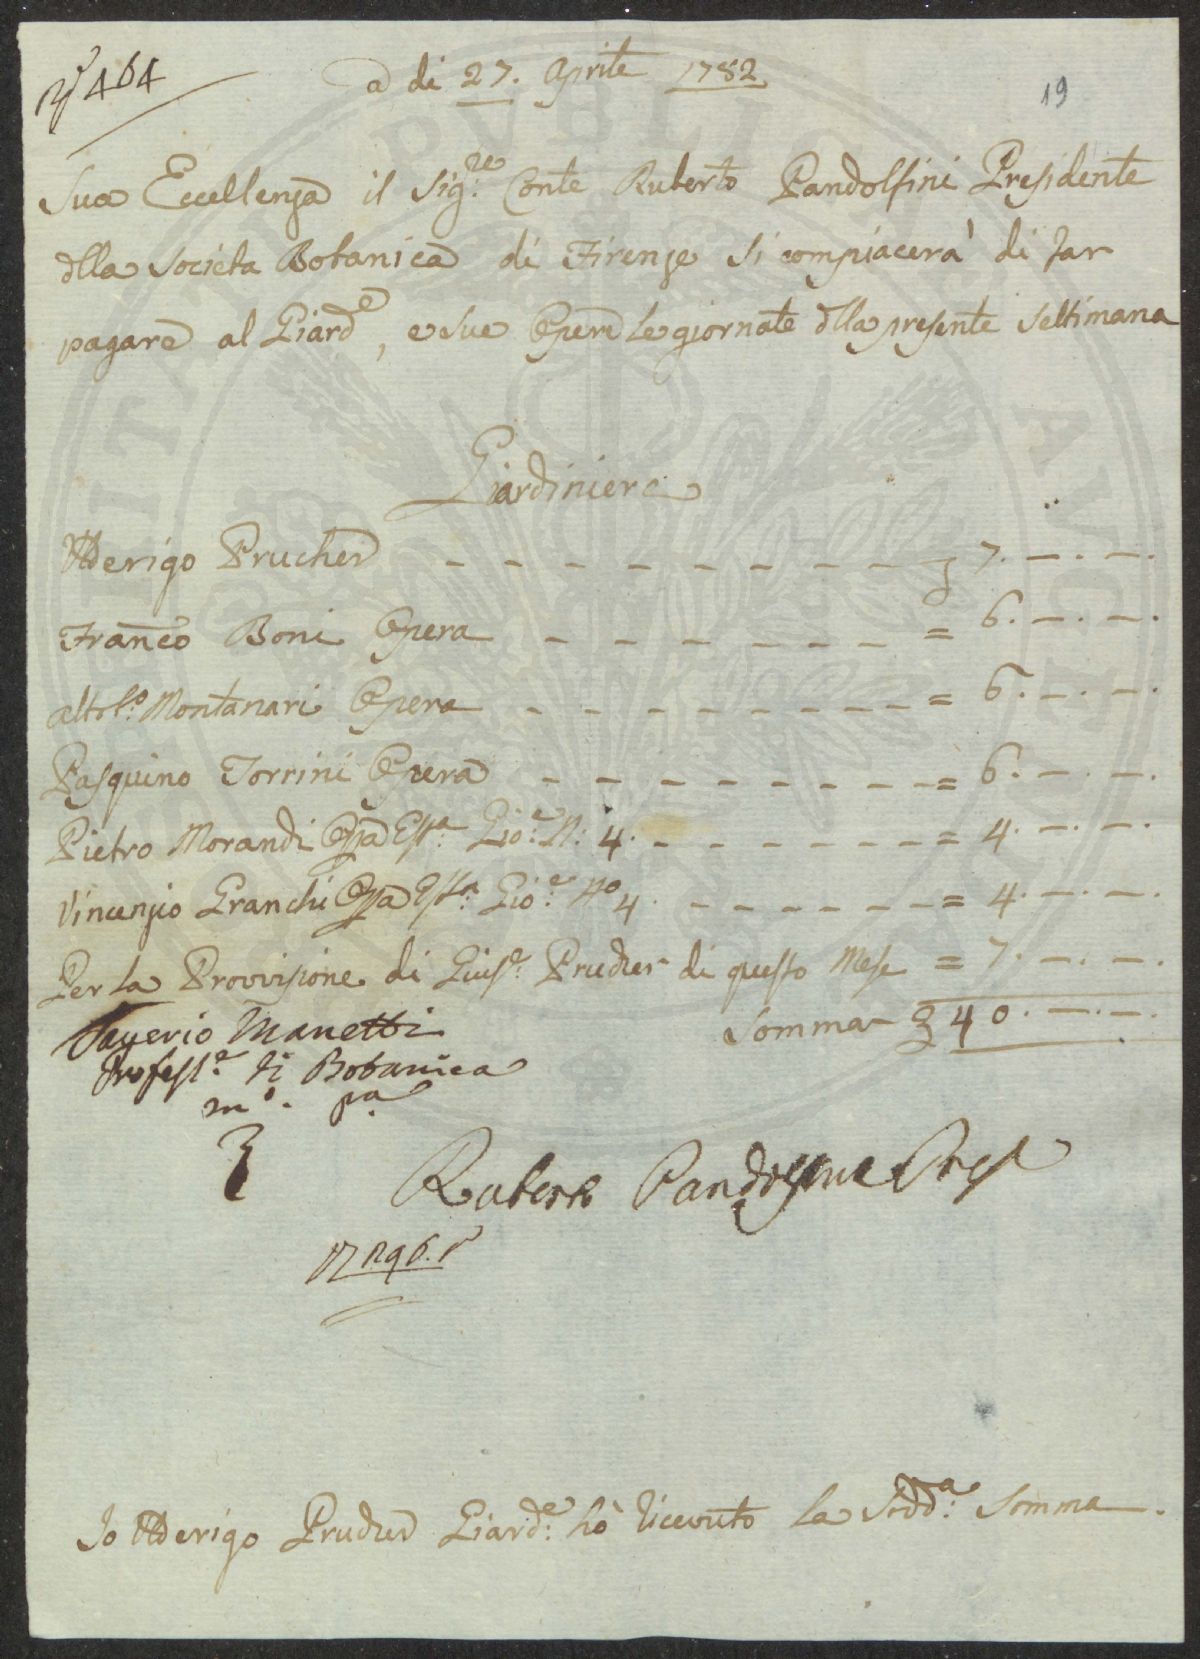 N° 464
a di 27. Aprile 1782
19
Sua Eccellenza il Sig:re Conte Ruberto Pandolfini Presidente
dlla Societa Botanica di Firenze si compiacerà di far
pagare al Giard:e, e sue Opere le giornate dlla presente Settimana
Giardiniere
Uderigo Prucher - - - - - - - - - 7. —. —.
Franco Boni Opera - - - - - - = 6. —. —.
Montanari Opera - - - - - - - - = 6. —. —.
Pasquino Torrini Opera - - - - - - - = 6. —. —.
Pietro Morandi Opa Estra Gio:e N: 4. - - - - - - - = 4. —. —.
Vincenzio Granchi Opa Estra Gio:e N° 4. - - - - - - = 4. —. —.
Per la Provvisione di Gius:e Prucher di questo Mese = 7. —. —.
Somma 40. —. —.
Saverio Manetti
Profess:e di Botanica
m°. pa
Ruberto Pandolfini Pres
Io Uderigo Prucher Giard:e hò ricevuto la Sudd:a Somma.